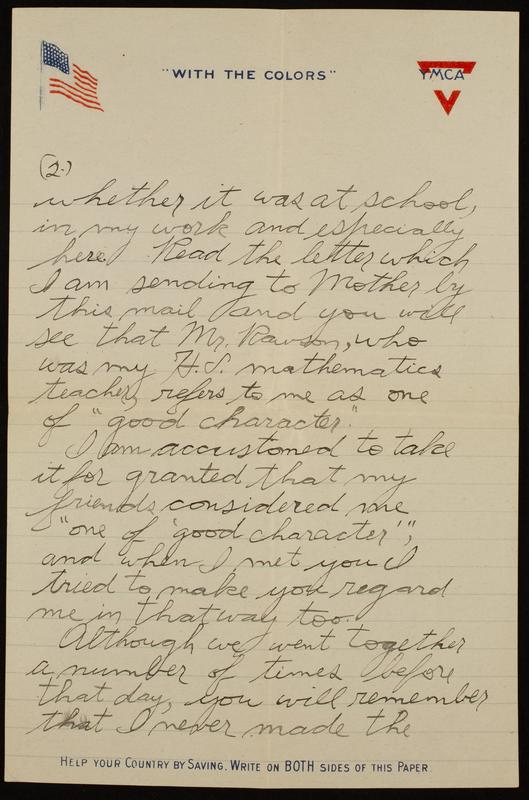 "WITH THE COLORS"
YMCA
(2.)
whether it was at school,
in my work and especially
here. Read the letter which
I am sending to Mother by
this mail and you will
see that Mr. Rawson, who
was my H.S. mathematics
teacher, refers to me as one
of "good character."
I am accustomed to take
it for granted that my
friends considered me
"one of 'good character'",
and when I met you I
tried to make you regard
me in that way too.
Although we went together
a number of times before
that day, you will remember
that I never made the
HELP YOUR COUNTRY BY SAVING. WRITE ON BOTH SIDES OF THIS PAPER